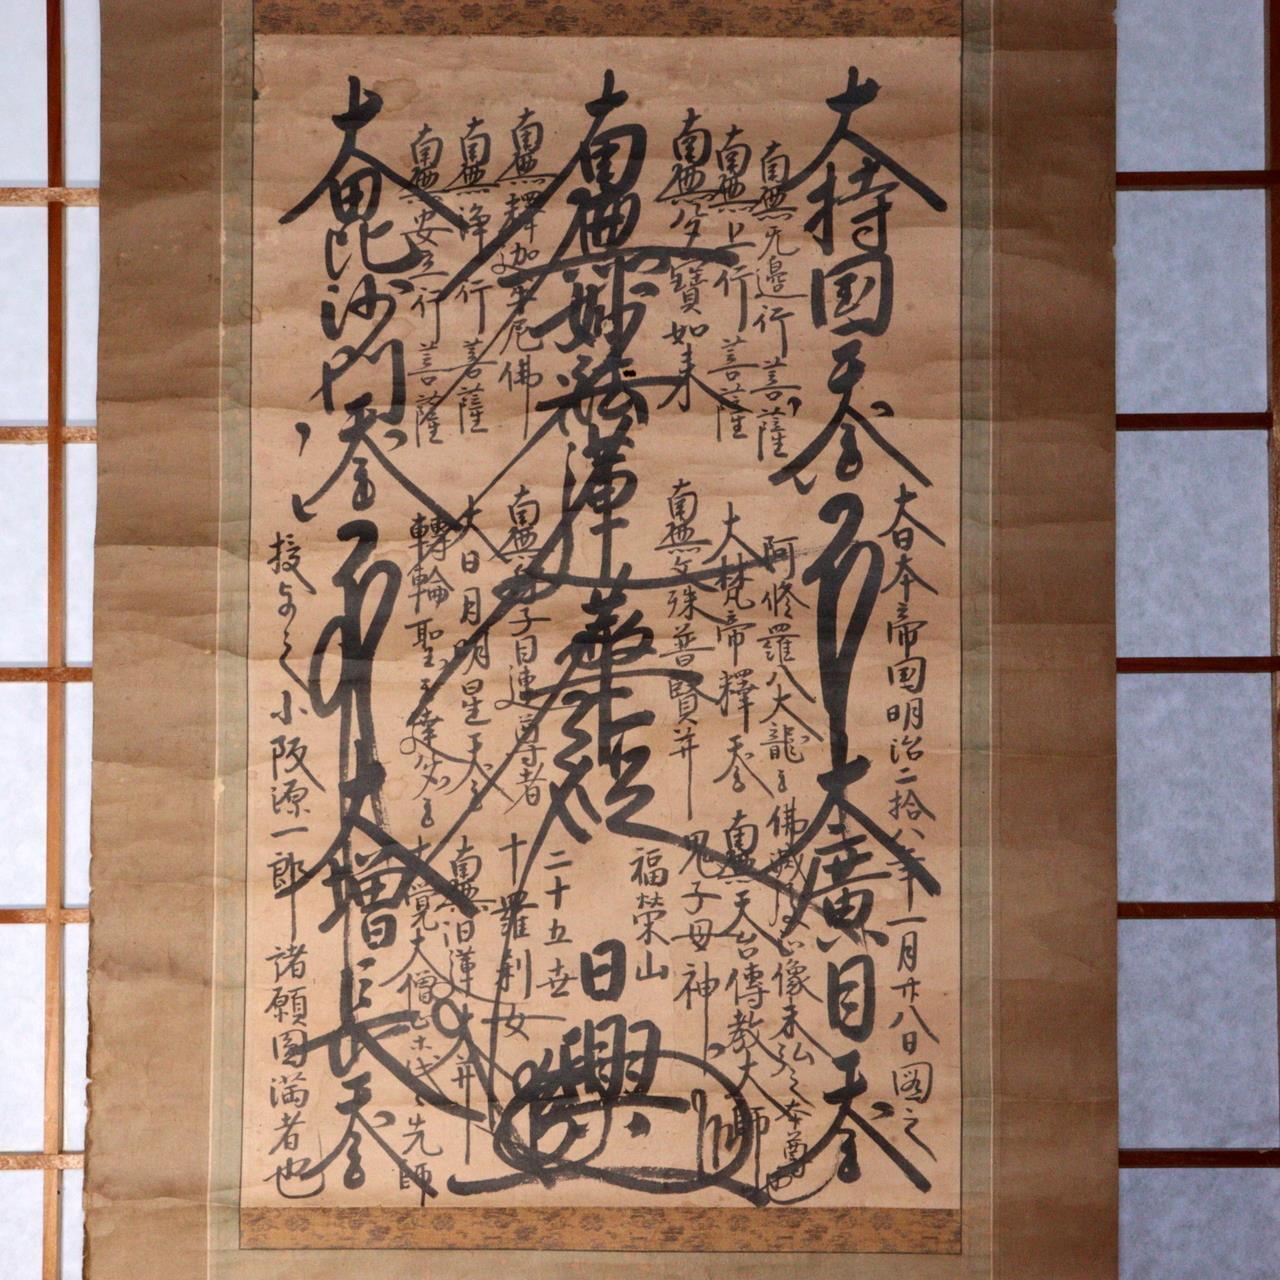 大日本帝国明治二拾八年一月廿八日図之
大持国天王
大廣目天王
南無无邊行菩薩
阿修羅八大龍王
佛滅後
像未弘之本尊也
南無上行菩薩
大梵帝釋天王
南無天台傳教大師
南無多寶如来
南無文殊普賢菩薩
鬼子母神
福栄山
南無妙法蓮華経
日興
二十五世
南無釋迦牟尼佛
南無舎利子目連尊者
十羅刹女
南無浄行菩薩
大日月明星天王
南無日蓮大菩薩
南無安立行菩薩
轉輪聖王達多王
覚大僧正
先師
大毘沙門天王
大増長天王
授与之小阪源一郎諸願圓満者也